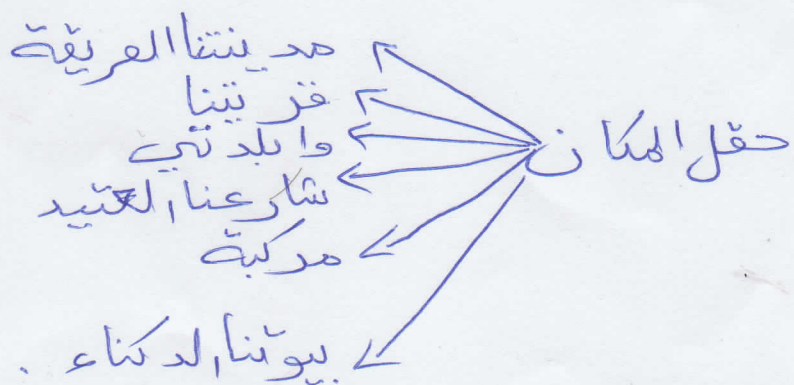 حقل المكان
مدينتنا العريقة
قريتنا
وابلدتي
شارعنا العتيد
مركبة
بيوتنا الدكناء .